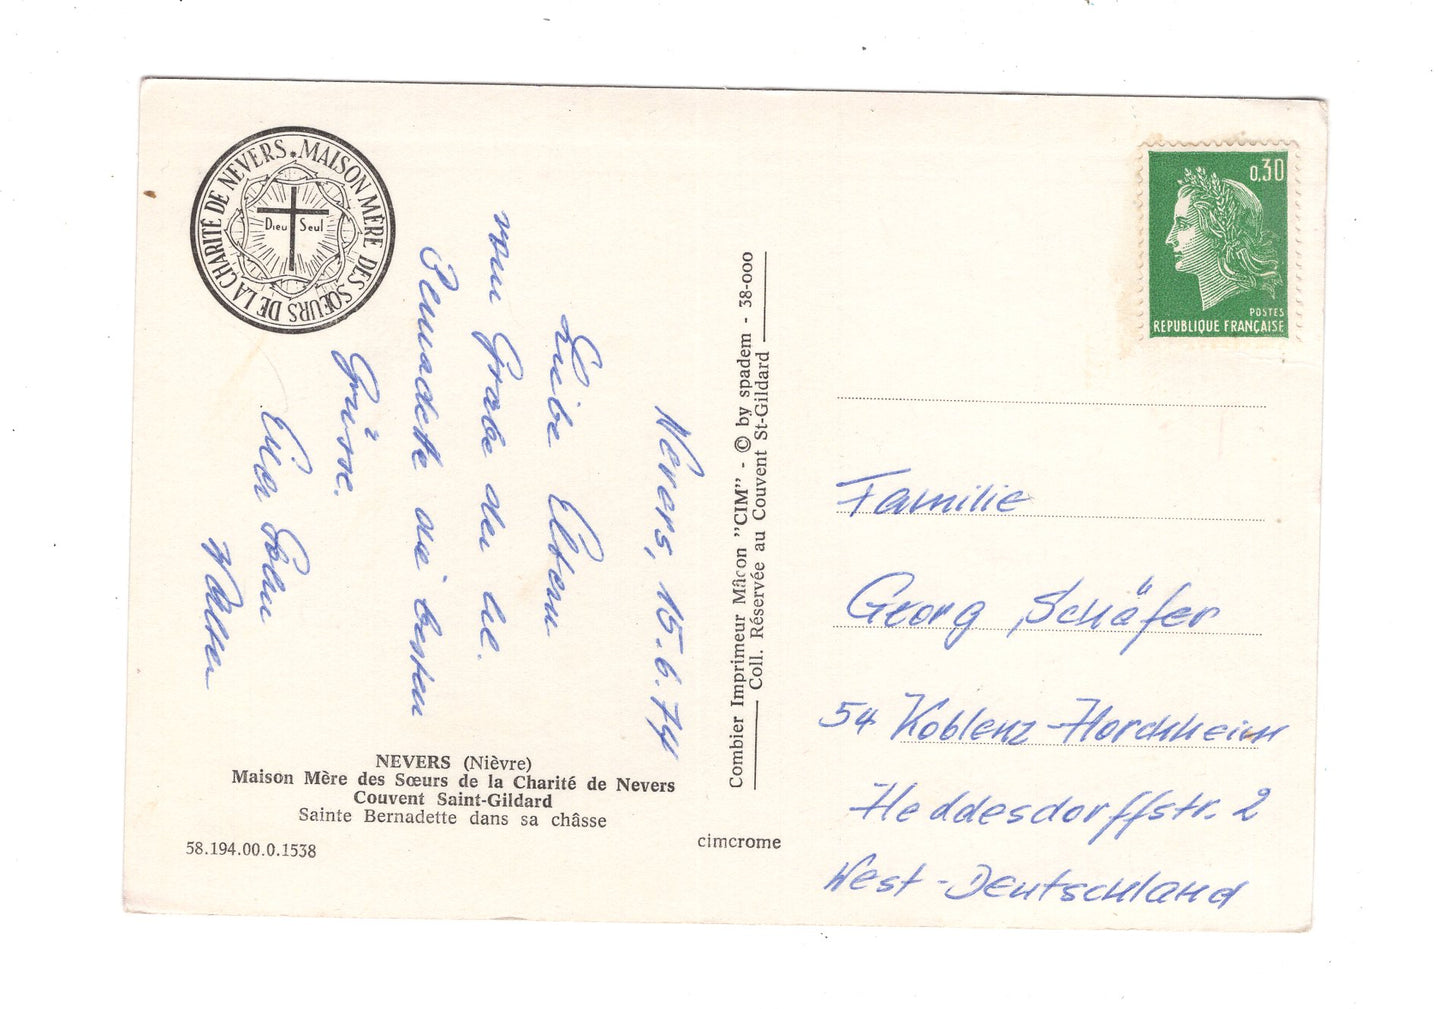 MAISON MÈRE DES SŒURS DE LA CHARITÉ DE NEVERS
Dieu Seul
Nevers, 15.6.74
Liebe Eltern
vom Grabe der hl.
Bernadette die besten
Grüsse.
Euer Sohn
Walter
NEVERS (Nièvre)
Maison Mère des Sœurs de la Charité de Nevers
Couvent Saint-Gildard
Sainte Bernadette dans sa châsse
58.194.00.0.1538
cimcrome
Combier Imprimeur Mâcon "CIM" - © by spadem - 38-000
Coll. Réservée au Couvent St-Gildard
0,30
POSTES
REPUBLIQUE FRANÇAISE
Familie
Georg Schäfer
54 Koblenz-Horchheim
Heddesdorffstr. 2
West-Deutschland